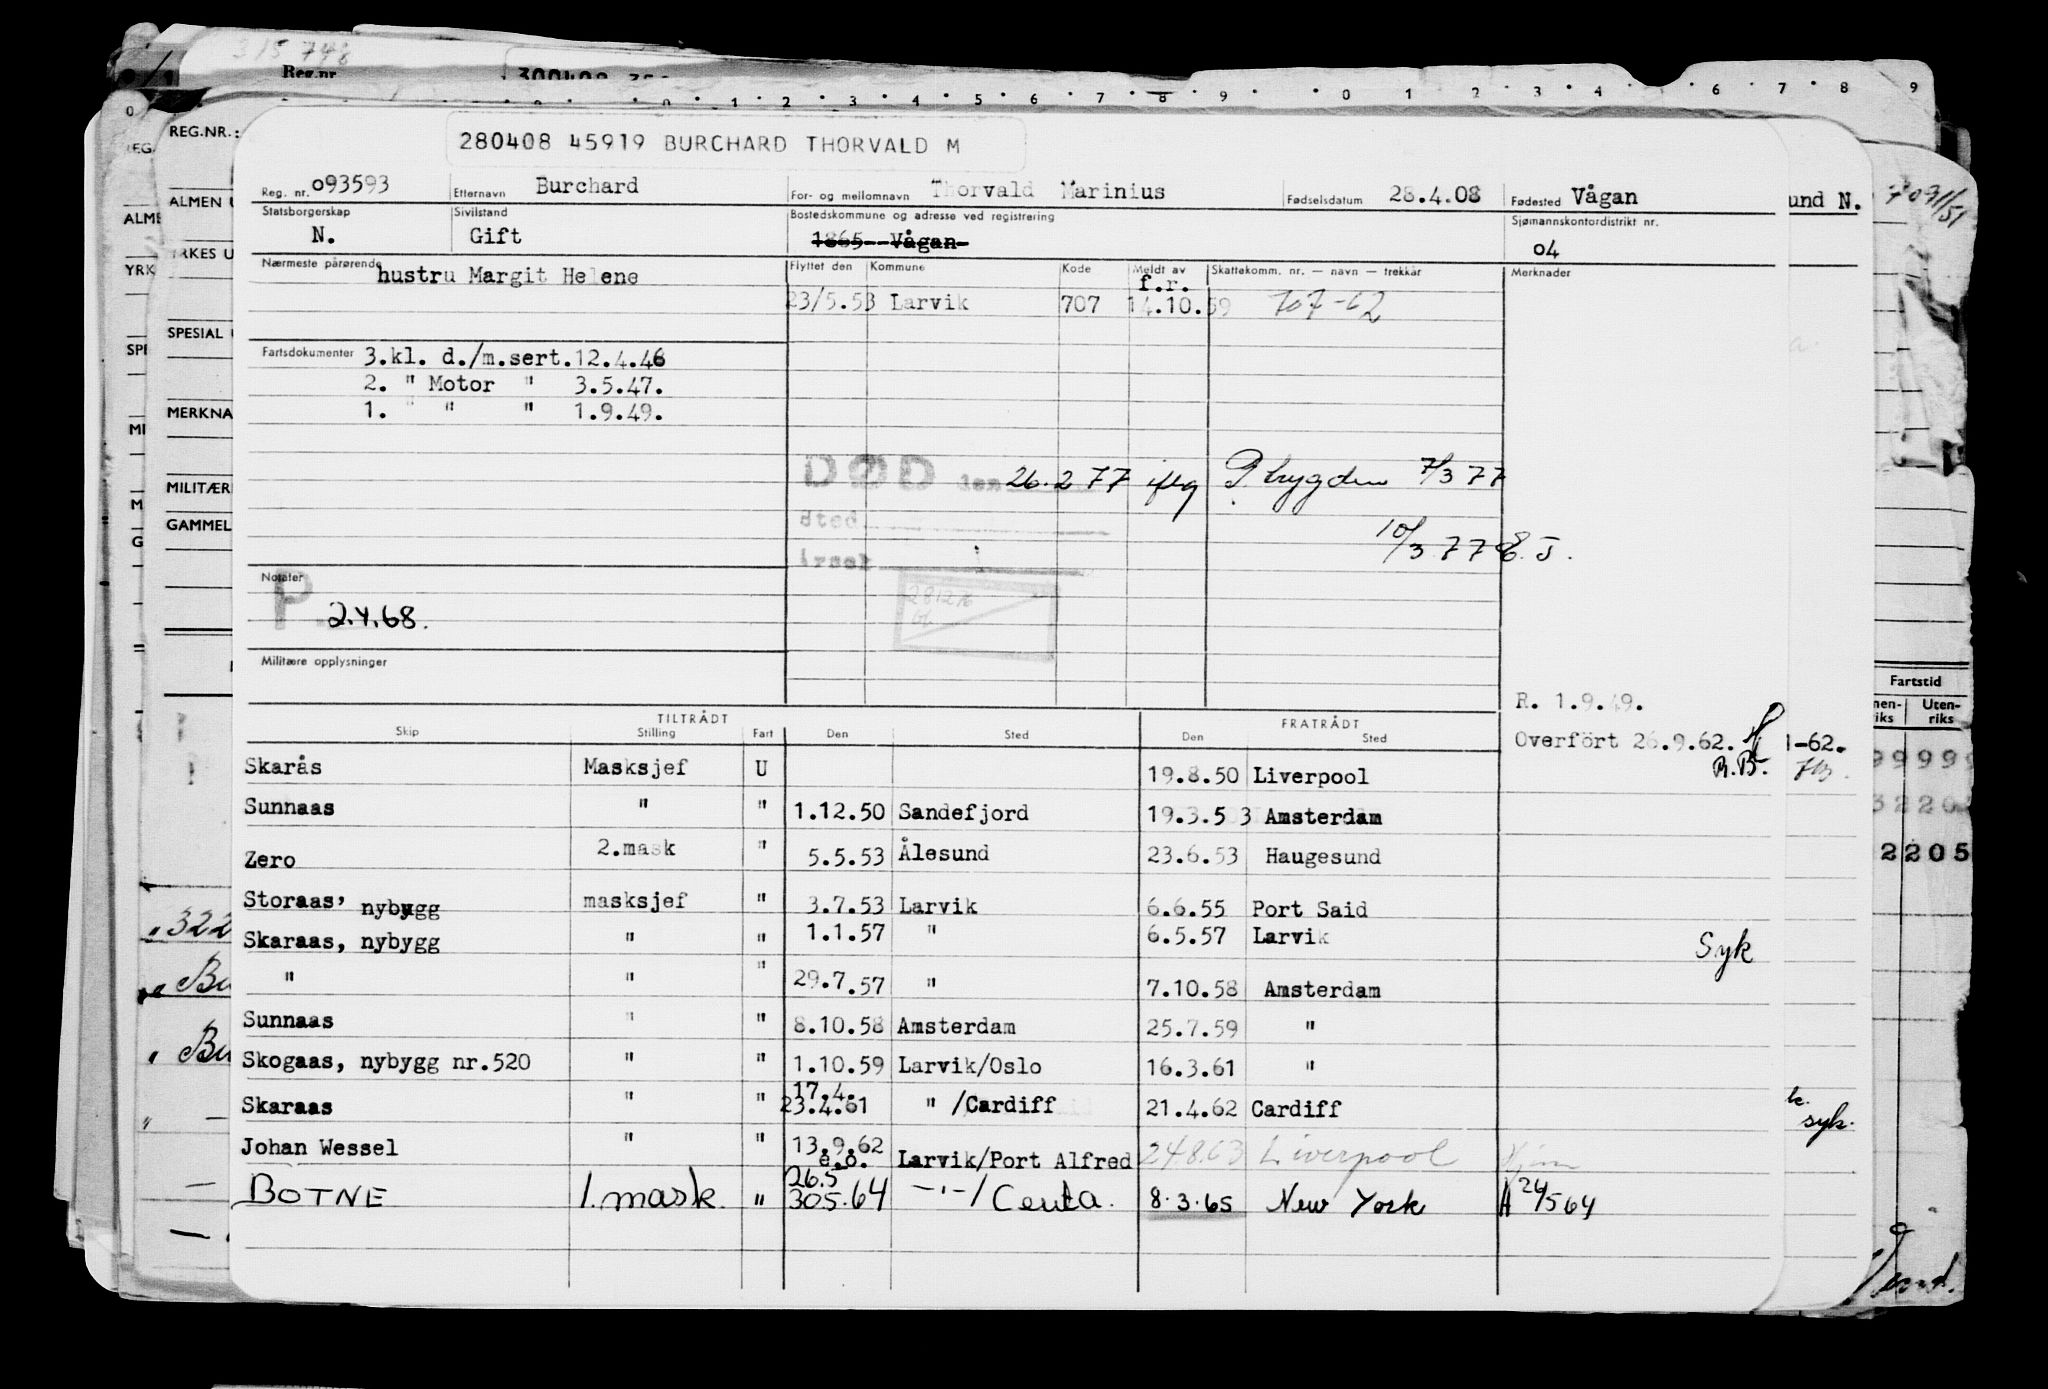 315 748
Reg.nr
0 1 2 3 4 5 6 7 8 9 0 1 2 3 4 5 6 7 8 9
REG.NR.:
280408 45919 BURCHARD THORVALD M
Reg. nr. 093593 Etternavn Burchard For- og mellomnavn Thorvald Marinius Fødselsdatum 28.4.08 Fødested Vågan
und N.
ALMEN U
ALME
Statsborgerskap Sivilstand Bostedskommune og adresse ved registrering Sjømannskontordistrikt nr.
N. Gift 1865 Vågan 04
YRKES U
YRK
Nærmeste pårørende hustru Margit Helene Flyttet den Kommune Kode Meldt av Skattekomm. nr. — navn — trekkår Merknader
f.r.
23/5.53 Larvik 707 14.10.59 707-62
SPECIAL U
SPE
Fartsdokumenter 3.kl. d./m.sert.12.4.46
2. " Motor " 3.5.47.
1. " " " 1.9.49.
MERKNA
MILITÆR
GAMMEL
DØD den 26.2 77 iflg P. trygden 7/3 77
sted
årsak
10/3 77 E.J.
Notater
P. 2.4.68.
Militære opplysninger
R. 1.9.49.
Overfört 26.9.62.
R.B.
1-62.
Fartstid
Uten-
riks
TILTRÅDT FRATRÅDT
Skip Stilling Fart Den Sted Den Sted
Skarås Masksjef U 19.8.50 Liverpool
Sunnaas " " 1.12.50 Sandefjord 19.3.53 Amsterdam
Zero 2.mask " 5.5.53 Ålesund 23.6.53 Haugesund
2205
Storaas, nybygg masksjef " 3.7.53 Larvik 6.6.55 Port Said
Skaraas, nybygg " " 1.1.57 " 6.5.57 Larvik Syk
" " " 29.7.57 " 7.10.58 Amsterdam
Sunnaas " " 8.10.58 Amsterdam 25.7.59 "
Skogaas, nybygg nr.520 " " 1.10.59 Larvik/Oslo 16.3.61 "
17.4.
Skaraas " " 23.4.61 " /Cardiff 21.4.62 Cardiff
syk.
Johan Wessel " " 13.9.62 Larvik/Port Alfred 24863 Liverpool Hjem
e.o.
26.5
BOTNE 1.mask. " 30.5.64 —"—/Ceuta. 8.3.65 New York A 26/5 64